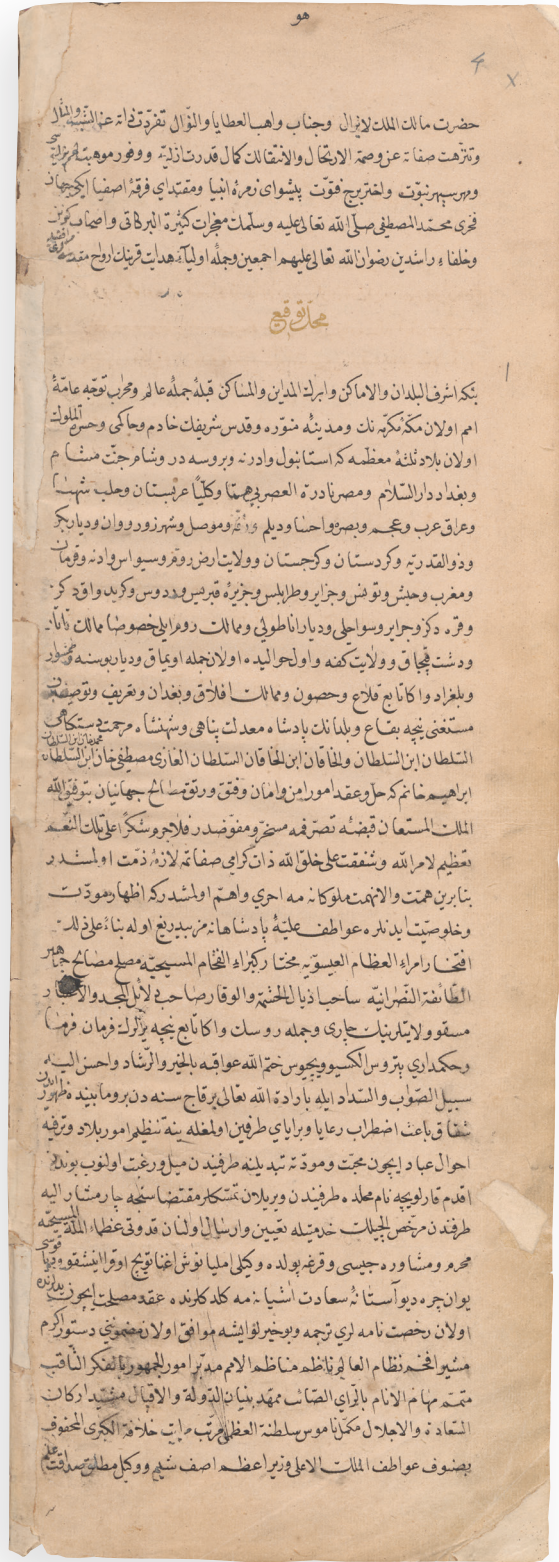 هو
حضرت مالك الملك لا يزال وجناب واهب العطايا والنوال تفردت ذاته عن الشبيه والمثال
وتنزهت صفاته عن وصمة الارتحال والانتقالك كمال قدرت ازليه ووفور موهبت
ومهر سپهر نبوت واختر برج فتوت پيشواى زمرۀ انبيا ومقتداى فرقۀ اصفيا ايكى جهان
فخرى محمد المصطفى صلى الله تعالى عليه وسلمك معجزات كثيرة البركاتى واصحاب كزين
وخلفاء راشدين رضوان الله تعالى عليهم اجمعين وجمله اوليآء هدايت قرينك ارواح مقدسه
محل توقيع
بنكه اشرف البلدان والاماكن وابرك المداين والمساكن قبلۀ جملۀ عالم ومحراب توجه عامۀ
امم اولان مكۀ مكرمه نك ومدينۀ منوره وقدس شريفك خادم وحاكمى وحسرة الملوك
اولان بلاد ثلثۀ معظمه كه استانبول وادرنه وبروسه در وشام جنت مشام
وبغداد دار السلام ومصر نادرة العصر بى همتا وكليا عربستان وحلب شهبا
وعراق عرب وعجم وبصره واحسا وديلم ورقه وموصل وشهرزور ووان ودياربكر
وذو القدريه وكردستان وكرجستان وولايت ارض روم وسيواس وادنه وقرمان
ومغرب وحبش وتونس وجزاير وطرابلس وجزيرۀ قبريس ورودوس وكريد واق دكز
وقره دكز وجزاير وسواحلى وديار اناطولى وممالك روم ايلى خصوصا ممالك تاتار
ودشت قپچاق وولايت كفه واول حواليده اولان جمله اويماق وديار بوسنه
وبلغراد واكا تابع قلاع وحصون وممالك افلاق وبغدان وتعريف وتوصيفدن
مستغنى نيچه بقاع وبلدانك پادشاه معدلت پناهى وشهنشاه مرحمت دستكاهى
السلطان ابن السلطان والخاقان ابن الخاقان السلطان الغازى مصطفى خان ابن السلطان محمد خان ابن السلطان
ابراهيم خانم كه حل وعقد امور امن وامان وفتق ورتق مصالح جهانيان بتوفيق الله
الملك المستعان قبضۀ تصرفمه مسخر ومفوضدر فلا جرم شكرا على تلك النعم
تعظيم لامر الله وشفقت على خلق الله ذات كرامى صفاتمه لازمۀ ذمت اولمشدر
بنابرين همت والا نهمت ملوكانه مه احرى واهم اولمشدر كه اظهار مودت
وخلوصيت ايدنلره عواطف عليۀ پادشاهانه مز بيدريغ اوله بناء على ذلك
افتخار امراء العظام العيسويه مختار كبراء الفخام المسيحيه مصلح مصالح جماهير
الطائفة النصرانيه ساحب اذيال الحشمة والوقار صاحب دلائل المجد والاعتبار
مسقوولايتلرينك چارى وجمله روسك واكا تابع نيچه يرلرك فرمان فرما
وحكمدارى پتروس الكسيوويچيوس ختم الله عواقبه بالخير والرشاد واحسن اليه
سبيل الصواب والسداد ايله بارادة الله تعالى برقاچ سنه دن برو مابينده ظهور ايدن
شقاق باعث اضطراب رعايا وبراياى طرفين اولمغله ينه تنظيم امور بلاد وترفيه
احوال عباد ايچون محبت ومودته تبديلنه طرفيندن ميل ورغبت اولنوب بوندن
اقدم قارلويچه نام محلده طرفيندن ويريلان تمسكلر مقتضاسنجه چار مشار اليه
طرفندن مرخص ايلچيلك خدمتيله تعيين وارسال اولنان قدوتى عظماء الملة المسيحيه
محرم ومشاوره جيسى وقرغه پولده وكيلى امليانوش اغناتويچ اوقراينسقو
يوان چره ديو آستانۀ سعادت اشيانه مه كلدكلرنده عقد مصلحت ايچون
اولان رخصت نامه لرى ترجمه وبو خير لو ايشه موافق اولان مضمونى دستور اكرم
مشير افخم نظام العالم ناظم مناظم الامم مدبر امور الجمهور بالفكر الثاقب
متمم مهام الانام بالراى الصائب ممهد بنيان الدولة والاقبال مشيد اركان
السعادة والاجلال مكمل ناموس سلطنة العظمى مرتب مراتب خلافة الكبرى المحفوف
بصنوف عواطف الملك الاعلى وزير اعظم اصف شيم ووكيل مطلق صداقت علم